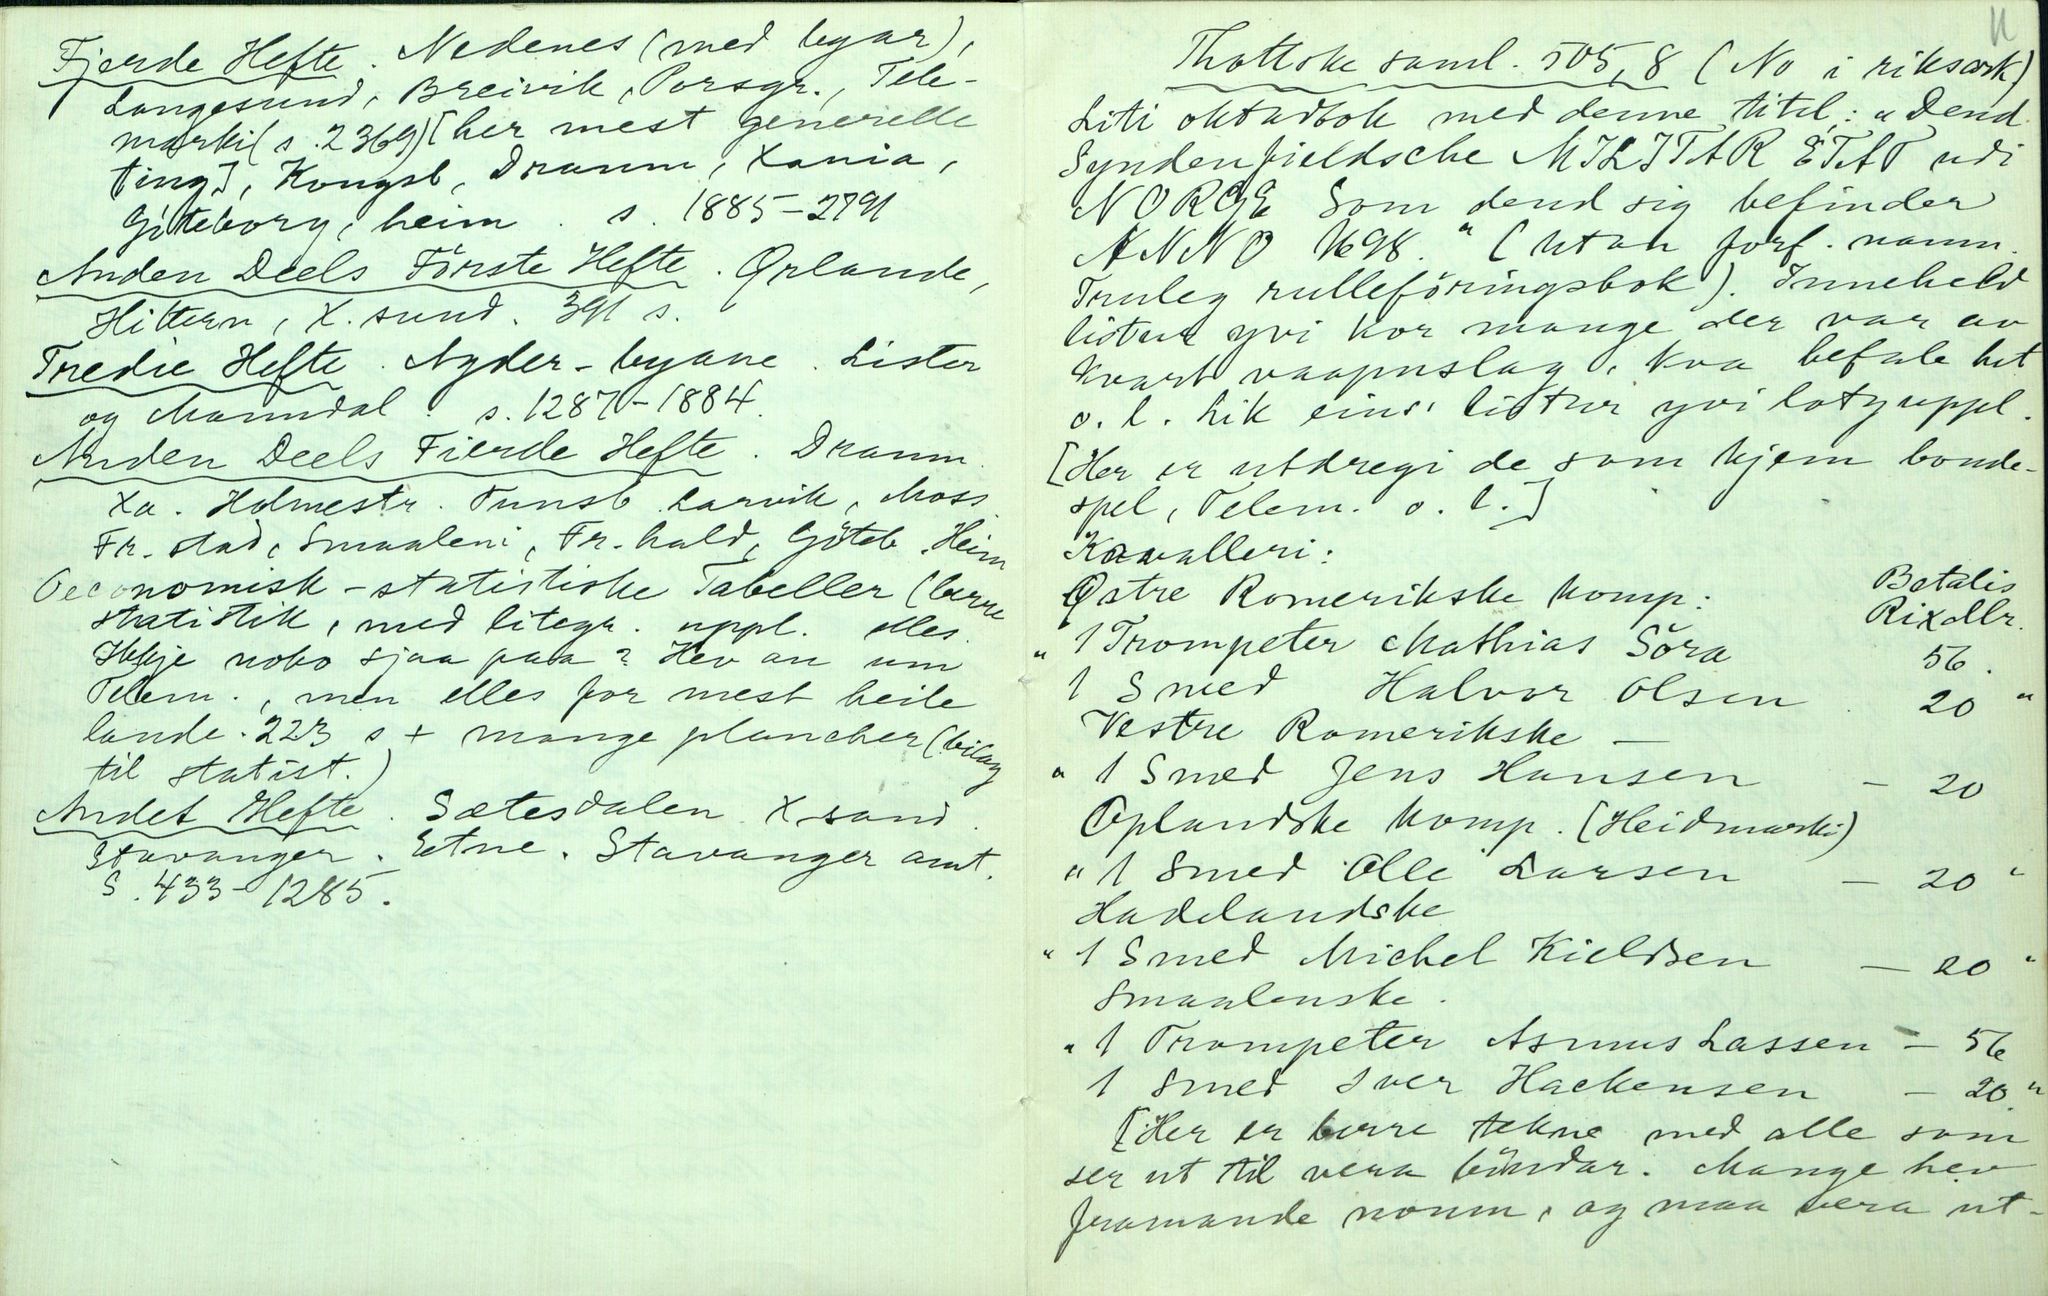 Fjerde Hefte. Nedenes (med byar),
Langesund, Breivik, Porsgr., Tele-
marki (s. 2369) [her mest generelle
ting], Kongsb, Dramm, Xania,
Göteborg, heim. s. 1885-2791
Anden Deels Förste Hefte. Ørlande,
Hittern, X.sund. 391 s.
Tredie Hefte. Agder-byane. Lister
og Manndal. s. 1287-1884.
Anden Deels Fierde Hefte. Dramm.
Xa. Holmestr. Tunsb. Larvik, Moss.
Fr.stad, Smaaleni, Fr.hald, Göteb. Heim
Oeconomisk-statistiske Tabeller (berre
statistik, med litegr. uppl. elles.
Ikkje noko sjaa paa? Hev an um
Telem., men elles for mest heile
lande. 223 s + mange plancher (bilag
til statist.)
Andet Hefte. Sætesdalen X.sand.
Stavanger. Etne. Stavanger amt.
S. 433-1285.
11
Thottske saml. 505, 8 (No i riksark)
Liti oktavbok med denne titel: "Dend
Syndenfieldsche MILITAR ETAT udi
NORGE Som dend sig befinder
ANNO 1698." (Utan forf. namn.
Truleg rulleföringsbok). Inneheld
listur yvi kor mange der var av
kvart vaapnslag, kva befale het
o. l. Lik eins listur yvi lotguppl.
[Her er utdregi de som kjem bonde-
spel, Telem. o. l.]
Kavalleri:
Østre Romerikske komp: Betalis
Rixdlr.
" 1 Trompeter Mathias Söra 56.
1 Smed Halvor Olsen 20 "
Vestre Romerikske —
" 1 Smed Jens Hansen — 20
Oplandske komp. (Heidmarki)
" 1 Smed Olle Larsen — 20 "
Hadelandske
" 1 Smed Michel Kieldsen — 20 "
Smaalenske.
" 1 Trompeter Asmus Lassen — 56
1 Smed Iver Hackensen — 20 "
[Her er berre tekne med alle som
ser ut til vera böndar. Mange hev
framande namn, og maa vera ut-